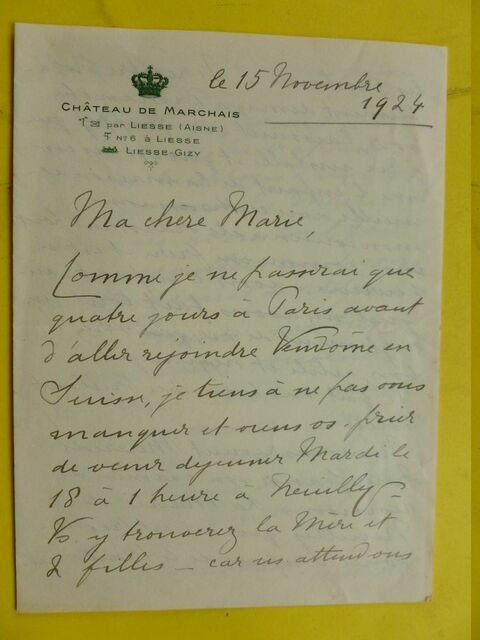 le 15 Novembre
1924
CHÂTEAU DE MARCHAIS
par LIESSE (AISNE)
Nº 6 à LIESSE
LIESSE-GIZY
Ma chère Marie,
Comme je ne passerai que
quatre jours à Paris avant
d'aller rejoindre Vendôme en
Suisse, je tiens à ne pas vous
manquer et viens vs. prier
de venir dejeuner Mardi le
18 à 1 heure à Neuilly –
Vs y trouverez la Mère et
2 filles – car ns attendons